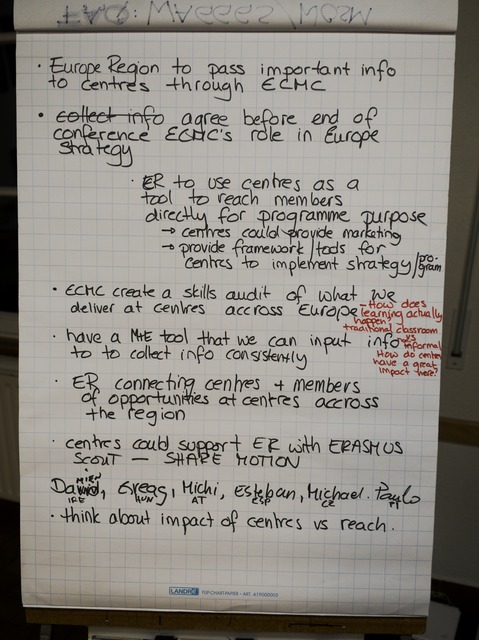 FAQ: WAGGGS / WOSM
· Europe Region to pass important info
to centres through ECMC
· collect info agree before end of
conference ECMC's role in Europe
Strategy
· ER to use centres as a
tool to reach members
directly for programme purpose
→ centres could provide marketing
→ provide framework/tools for
centres to implement strategy/pro-
gram
· ECMC create a skills audit of what we
deliver at centres accross Europe
- How does
learning actually
happen,
traditional classroom
vs
informal
How do centres
have a great
impact here?
· have a M+E tool that we can input info
to to collect info consistently
· ER connecting centres + members
of opportunities at centres accross
the region
· centres could support ER with ERASMUS
SCOUT — SHARE MOTION
Greag, Michi, Esteban, Michael. Paulo
IRE HUN AT ESP CZ PT
· think about impact of centres vs reach.
LANDRÉ FLIPCHARTPAPIER · ART.